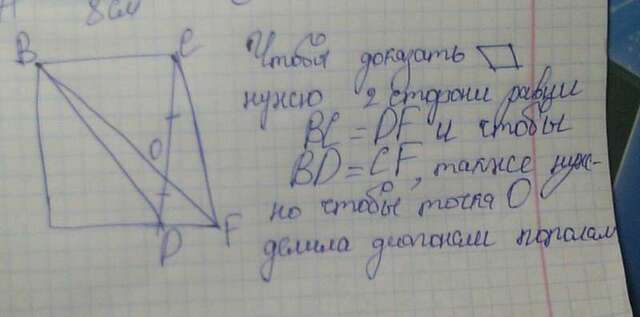 8см
B
C
O
D
F
Чтобы доказать ▱
нужно 2 стороны равны
BC = DF и чтобы
BD = CF, также нуж-
но чтобы точка O
делила диагонали пополам